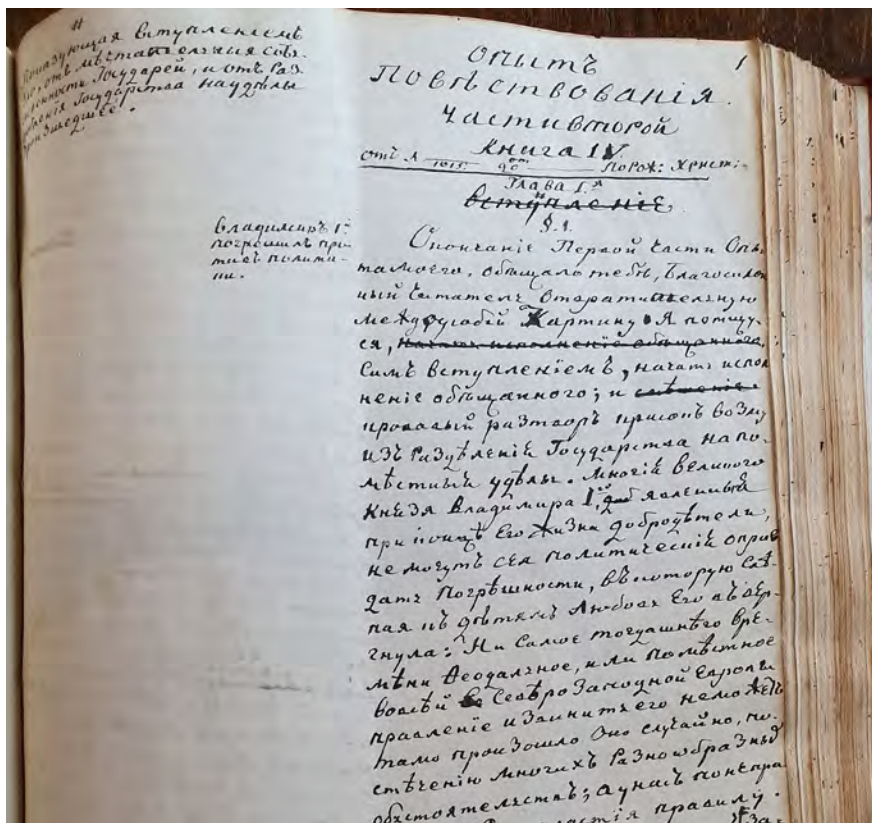 показующая вступленіемъ
Государей, и отъ Раз-
Государства на удѣлы
произшедшее.
Владимиръ I.й
погрѣшилъ про-
тивъ полити-
ки.
1
Опытъ
Повѣствованія.
Части второй
Книга IV.
отъ Л 1015. до По Рож: Христ:
Глава I.я
Вступленіе
§.1.
Окончаніе Первой Части Опы-
та моего, обѣщало тебѣ, Благосклон
ный Читатель отвратительную
междоусобій Картину. Я потщу-
ся, начать исполненіе обѣщаннаго.
Симъ вступленіемъ, начать испол
неніе обѣщанного; и смѣшеніе
кровавый растворъ красокъ возму
изъ Раздѣленія Государства на по-
мѣстныя удѣлы. Многія Великого
Князя Владимира I.го явленныя
при концѣ Его Жизни добродѣтели,
не могутъ сея политическія оправ
дать Погрѣшности, въ которую Слѣ-
пая къ дѣтямъ Любовь Его ввер-
гнула: Ни Самое тогдашнѣго Вре-
мѣни Ѳеодальное, или помѣстное
во всей Сѣверо Западной Европѣ
правленіе извинить его не можетъ
тамо произошло Оно случайно, по
стѣченію многихъ Разнообразныхъ
обстоятельствъ; а у насъ
правилу.